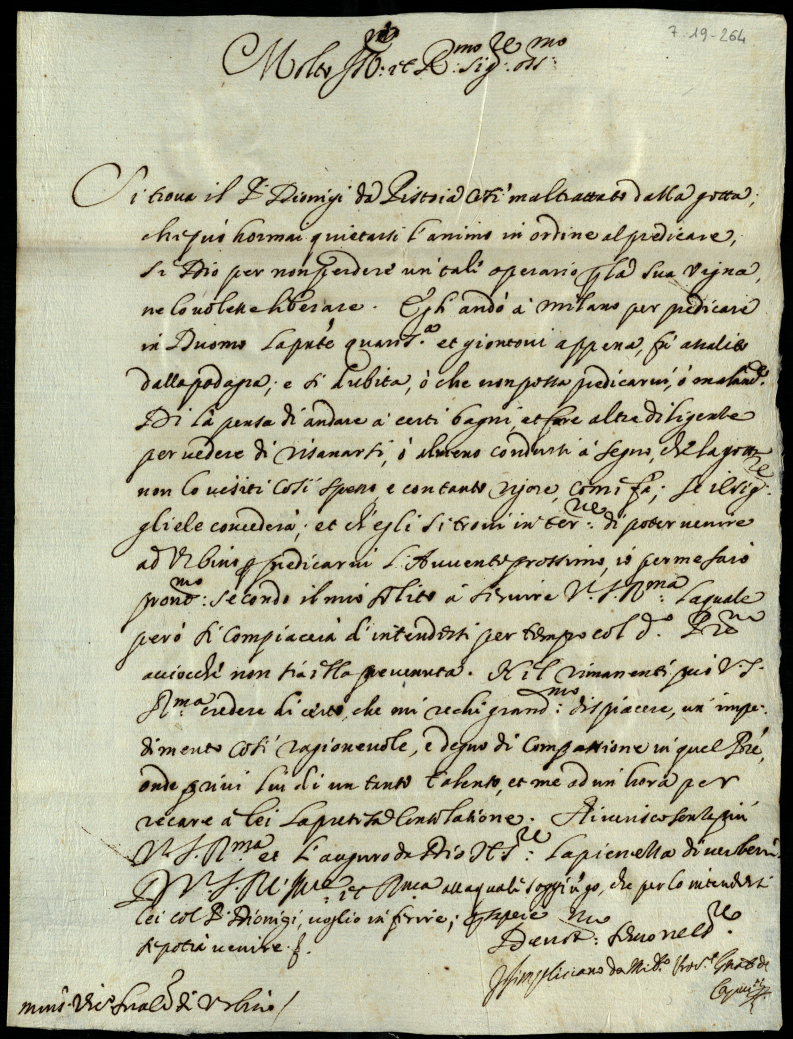 7-19-264
Molto Ill: et R:mo Sig:re oss:mo
Si troua il P. Dionigi da Pistoia così maltrattato dalla gotta,
che può hormai quietarsi l'animo in ordine al predicare,
se Dio per non perdere un' tale operario p la sua vigna,
ne lo volesse liberare. Egli andò à Milano per predicare
in Duomo la pnte quares.a et giontoui appena, fù assalito
dalla podagra; e si dubita, ò che non possa predicarui, ò
Di là pensa di andare à certi bagni, et fare altre diligenze
per vedere di risanarsi, ò almeno condursi à segno, che la gotta
non lo visiti così spesso, e con tanto rigore, come fa; Se il Sig.re
gliele concederà; et ch'egli si troui in ter:ne di poter venire
ad Vrbino p predicarui l'Auuento prossimo, io per me sarò
pront:mo secondo il mio solito à seruire V.S.R:ma laquale
però si compiacerà d'intendersi per tempo col d.o Pre
acciocchè non sia ella preuenuta. Nel rimanente può V.S.
R:ma credere di certo, che mi rechi grand:mo dispiacere, un' impe-
dimento così ragioneuole, e degno di compassione in quel Pre,
onde priui lui di un tanto talento, et me ad un' hora per
recare à lei la consolatione. Riuerisco
V.S.R:ma et l'auguro da Dio N.S:re la pienezza di
D V.S. et R.ma alla quale soggiungo, che per lo intendersi
lei col P. Dionigi, voglio inferire; sapere
se potrà venire.
Deuot:mo
da
Mons. Vic.o di Vrbino